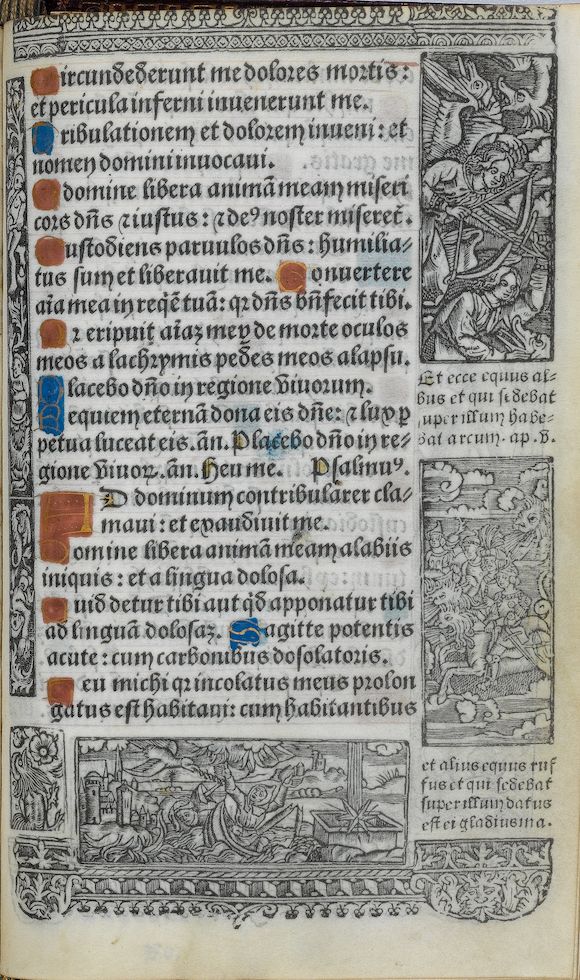 Circundederunt me dolores mortis:
et pericula inferni inuenerunt me.
Tribulationem et dolorem inueni: et
nomen domini inuocaui.
O domine libera animā meam miseri
cors dn̄s ⁊ iustus: ⁊ deꝰ noster miseret̄.
Custodiens paruulos dn̄s: humilia-
tus sum et liberauit me. Conuertere
aīa mea in reqē tuā: qꝛ dn̄s bn̄fecit tibi.
Qꝛ eripuit aīaꝫ meā de morte oculos
meos a lachrymis pedes meos a lapsu.
Placebo dn̄o in regione viuorum.
Requiem eternā dona eis dn̄e: ⁊ lux ꝑ
petua luceat eis. an̄. Placebo dn̄o in re-
gione viuoꝝ. an̄. Heu me. Psalmuꝰ.
AD dominum cum tribularer cla-
maui: et exaudiuit me.
Domine libera animā meam a labiis
iniquis: et a lingua dolosa.
Quid detur tibi aut qd̄ apponatur tibi
ad linguā dolosaꝫ. Sagitte potentis
acute: cum carbonibus dosolatoris.
Heu michi qꝛ incolatus meus prolon
gatus est habitaui: cum habitantibus
Et ecce equus al-
bus et qui sedebat
super illum habe-
bat arcum. ap. v.
et alius equus ruf
fus et qui sedebat
super illum datus
est ei gladius ma.